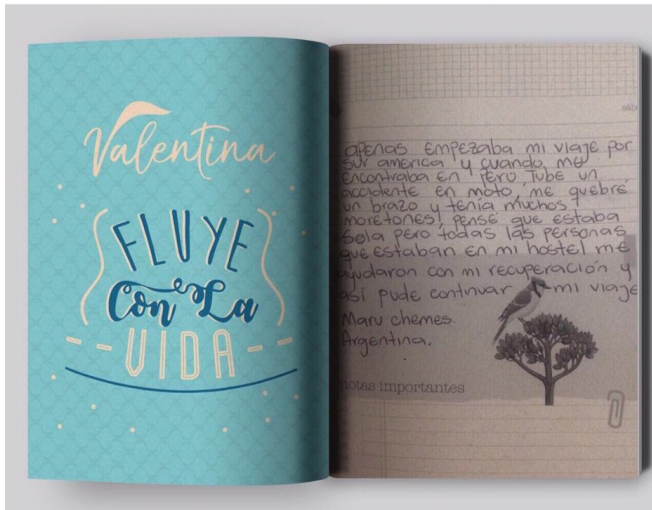 Valentina
FLUYE
Con La
VIDA
apenas empezaba mi viaje por
sur america y cuando me
encontraba en Peru Tube un
accidente en moto, me quebré
un brazo y tenia muchos
moretones! pensé que estaba
sola pero todas las personas
que estaban en mi hostel me
ayudaron con mi recuperación y
así pude continuar mi viaje
Maru chemes
Argentina.
notas importantes